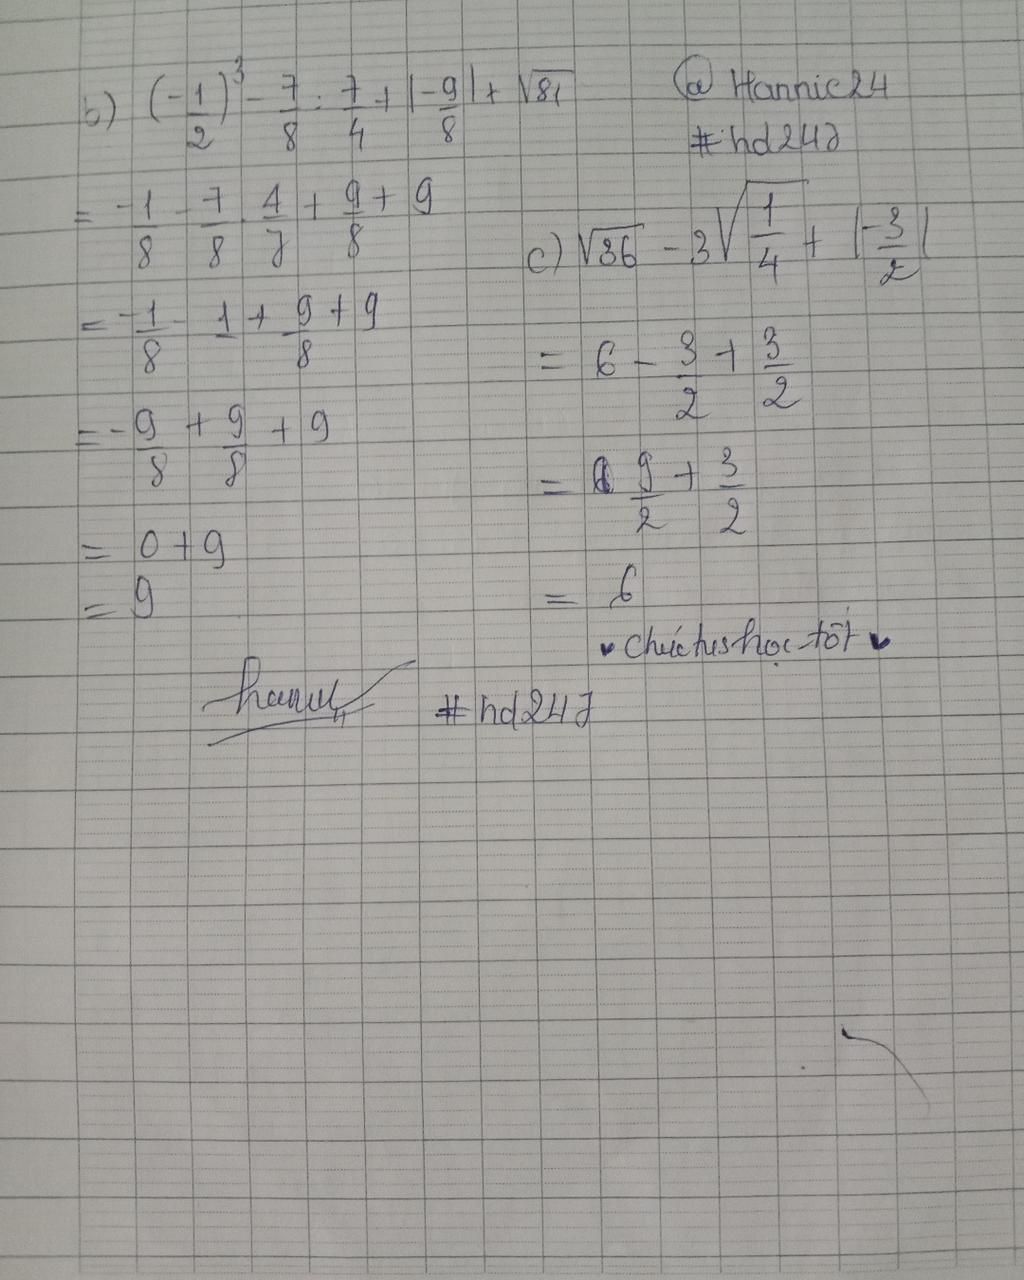 b) (-1/2)³ - 7/8 : 7/4 + |-9/8| + √81
= -1/8 - 7/8 . 4/7 + 9/8 + 9
= -1/8 - 1 + 9/8 + 9
= -9/8 + 9/8 + 9
= 0 + 9
= 9
@Hannie24
#hd247
c) √36 - 3√1/4 + |-3/2|
= 6 - 3/2 + 3/2
= 9/2 + 3/2
= 6
chúc tus học tốt
#hd247